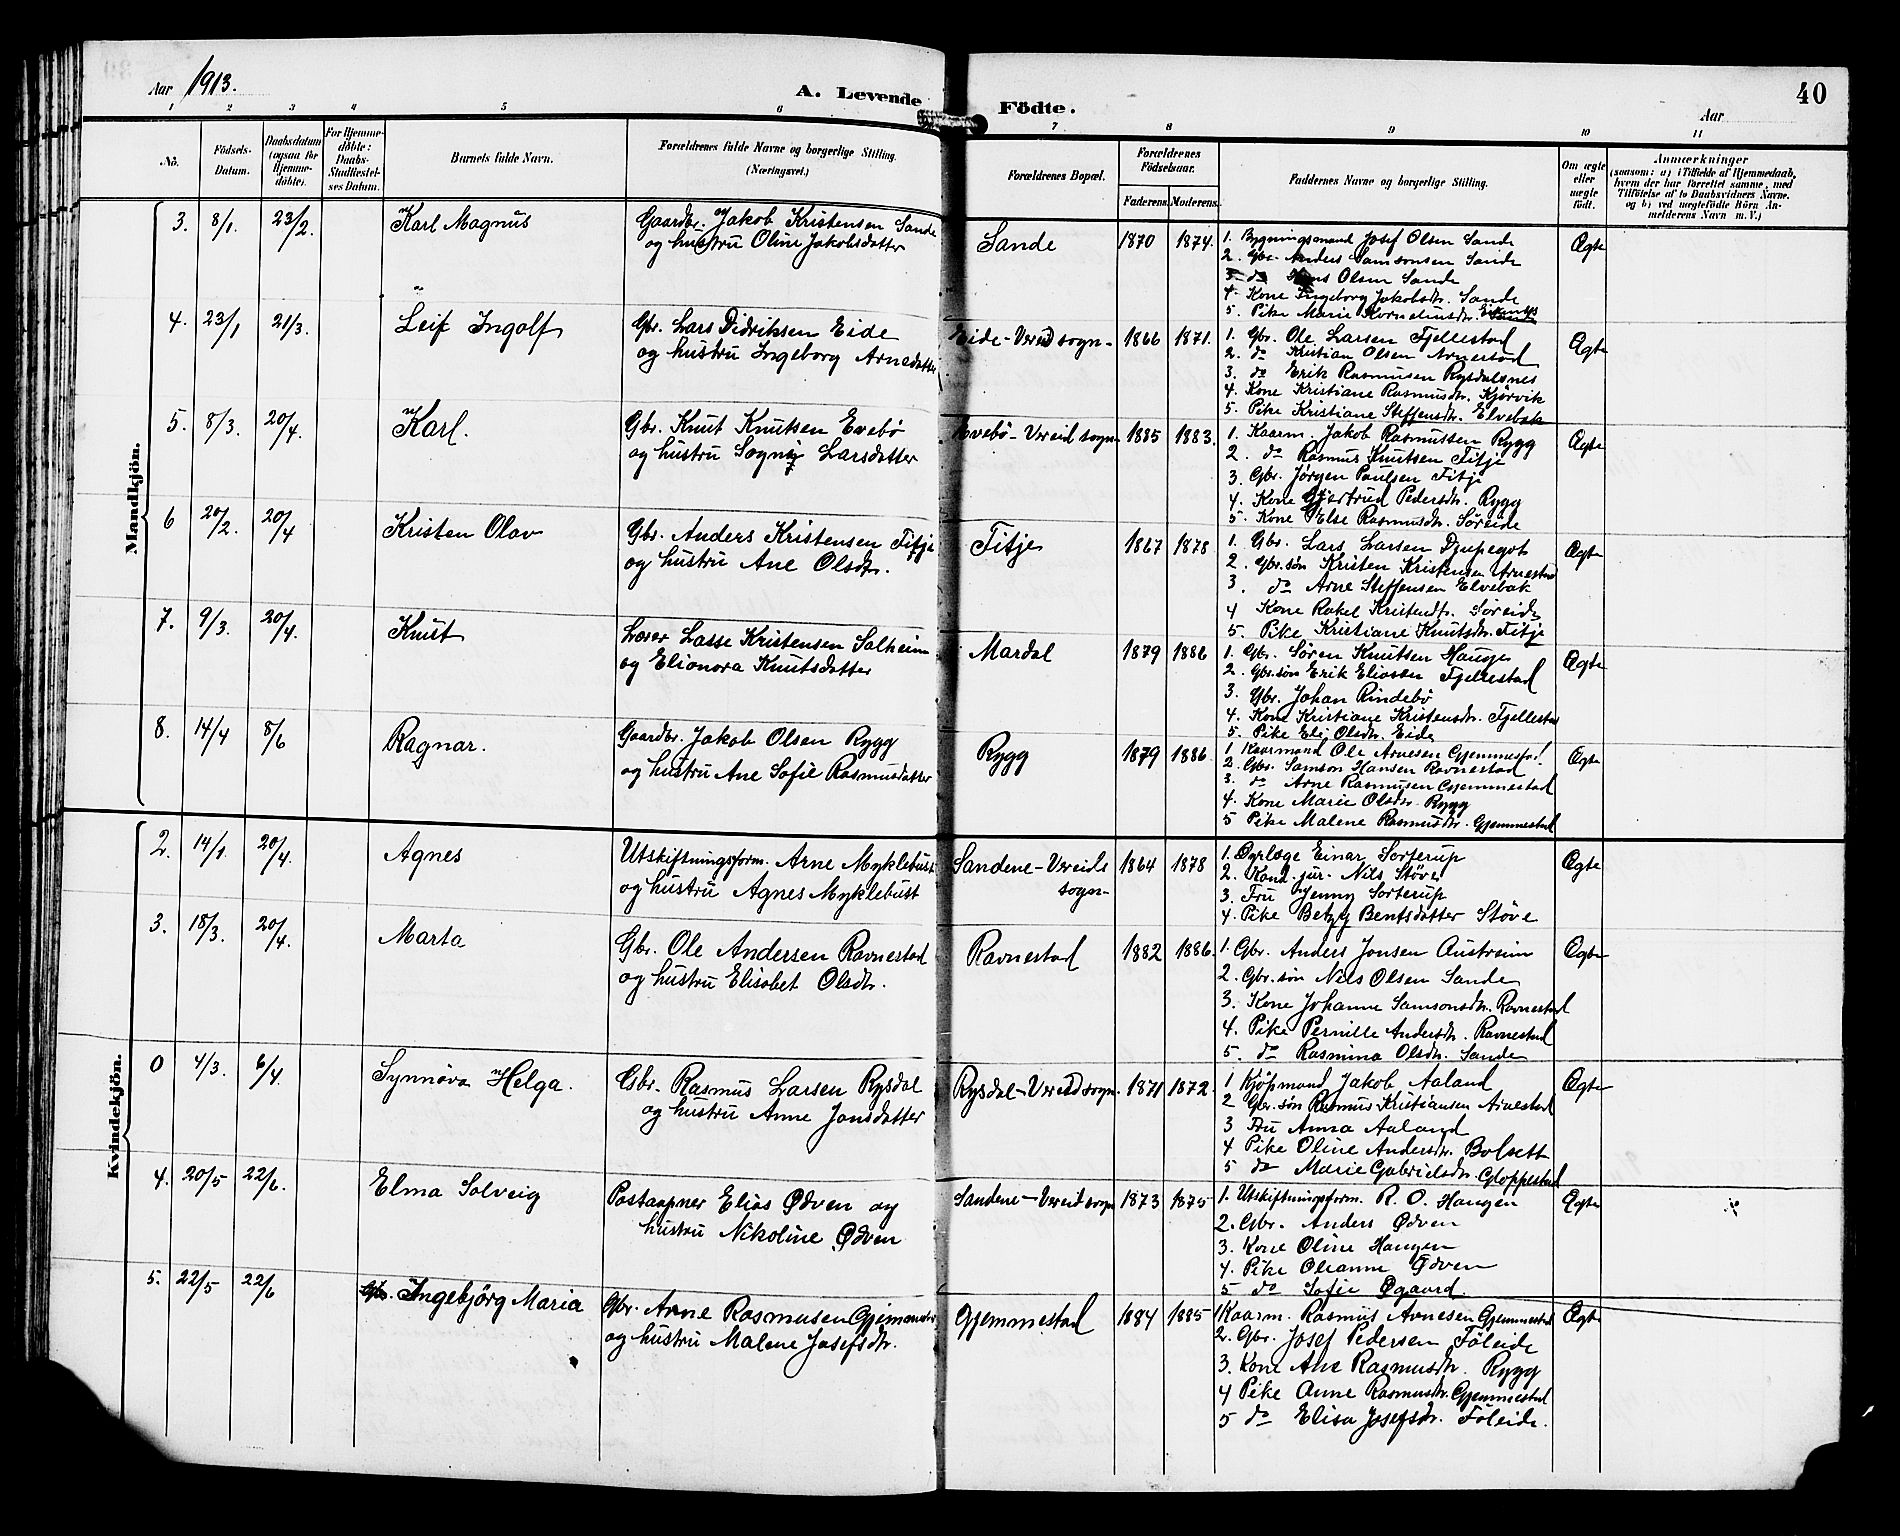 Aar 1913.
A. Levende Födte.
Aar
40
1 2 3 4 5 6 7 8 9 10 11
No.
Födsels-Datum.
Daabsdatum (ogsaa for Hjemmedöbte).
For Hjemmedöbte: Daabs-Stadfæstelses Datum.
Barnets fulde Navn.
Forældrenes fulde Navne og borgerlige Stilling.
(Næringsvei.)
Forældrenes Bopæl.
Forældrenes Födselsaar.
Faderens. Moderens.
Faddernes Navne og borgerlige Stilling.
Om ægte eller uægte født.
Anmærkninger
(saasom: a) i Tilfælde af Hjemmedaab,
hvem der har forrettet samme, med
Tilføielse af to Daabsvidners Navne.
og b) ved uægtefødte Börn An-
melderens Navn m. V.)
Mandkjön.
3. 8/1. 23/2. Karl Magnus
Gaardbr. Jakob Kristensen Sande
og hustru Oline Jakobsdatter
Sande 1870 1874.
1. Bygningsmand Josef Olsen Sande
2. Gbr. Anders Samsonsen Sande
3. do Hans Olsen Sande
4. Kone Ingeborg Jakobsdtr. Sande
5. Pike Marie Korneliusdtr.
Ægte
4. 23/1 21/3. Leif Ingolf
Gbr. Lars Didriksen Eide
og hustru Ingeborg Arnedatter
Eide - Vereid sogn - 1866 1871.
1. Gbr. Ole Larsen Fjellestad
2. do Kristian Olsen Arnestad
3. do Erik Rasmusen Rysdalsnes
4. Kone Kristiane Rasmusdtr. Kjørvik
5. Pike Kristiane Steffensdtr. Elvebak
Ægte
5. 8/3. 20/4. Karl.
Gbr. Knut Knutsen Evebø
og hustru Larsdatter
Evebö - Vereid sogn - 1885 1883.
1. Kaarm. Jakob Rasmussen Rygg
2. do Rasmus Knutsen Titje
3. Gbr. Jørgen Paulsen Titje
4. Kone Gjertrud Pedersdtr. Rygg
5. Kone Else Rasmusdtr. Søreide
Ægte
6 20/2. 20/4 Kristen Olav
Gbr. Anders Kristensen Titje
og hustru Ane Olsdtr.
Titje 1867 1878
1. Gbr. Lars Larsen Djupegot
2. Gbr.søn Kristen Kristensen Arnestad
3. do Arne Steffensen Elvebak
4 Kone Rakel Kristendtr. Søreide
5. Pike Kristiane Knutsdtr. Titje
Ægte
7. 9/3. 20/4. Knut
Lærer Lasse Kristensen Solheim
og Elionora Knutsdatter
Mardal 1879 1886
1. Gbr. Søren Knutsen Hauge
2. Gbr.søn Erik Eliassen Fjellestad
3. Gbr. Johan Rindebø
4. Kone Kristiane Kristensdtr. Fjellestad
5. Pike Eli Olsdtr. Eide
Ægte
8. 14/4 8/6 Ragnar.
Gaardbr. Jakob Olsen Rygg
og hustru Ane Sofie Rasmusdatter
Rygg 1879 1886
1. Kaarmand Ole Arnesen Gjemmestad
2. Gbr. Samson Hansen Ravnestad
3. do Arne Rasmusen Gjemmestad
4. Kone Marie Olsdtr. Rygg
5 Pike Malene Rasmusdtr. Gjemmestad
Ægte
Kvindekjön.
2. 14/1. 20/4. Agnes
Utskiftningsform. Arne Myklebust
og hustru Agnes Myklebust
Sandene - Vereids sogn - 1864 1878
1. Dyrlæge Einar Sorterup
2. Kand. jur. Nils Støve
3. Fru Jenny Sorterup
4. Pike Betzy Bentsdatter Støve
Ægte
3. 18/3. 20/4. Marta
Gbr. Ole Andersen Ravnestad
og hustru Elisabet Olsdtr.
Ravnestad 1882 1886.
1. Gbr. Anders Jonsen Austreim
2. Gbr.søn Nils Olsen Sande
3. Kone Johanne Samsonsdtr. Ravnestad
4. Pike Pernille Andersdtr. Ravnestad
5. do Rasmina Olsdtr. Sande
Ægte
0 4/3. 6/4 Synnöva Helga.
Gbr. Rasmus Larsen Rysdal
og hustru Anne Jonsdatter
Rysdal - Vereid sogn. 1871 1872.
1 Kjöpmand Jakob Aaland
2 Gbr.søn Rasmus Kristiansen Arnestad
3 Fru Anna Aaland
4 Pike Oline Andersdtr. Bolsett
5 do Marie Gabrielsdtr. Gloppestad
Ægte
4. 20/5 22/6. Elma Solveig
Postaapner Elias Ødven og
hustru Nikoline Ødven
Sandene - Vereid sogn 1873 1875
1. Utskiftningsform. R. O. Haugen
2. Gbr. Anders Ødven
3. Kone Oline Haugen
4. Pike Oleanne Ødven
5 do Sofie Øgaard
Ægte
5. 22/5 22/6 Ingebjörg Maria
Gbr. Arne Rasmusen Gjemmestad
og hustru Malene Josefsdtr.
Gjemmestad 1884 1885
1 Kaarm. Rasmus Arnesen Gjemmestad
2. Gbr. Josef Pedersen Föleide
3. Kone Ane Rasmusdtr. Rygg
4 Pike Anne Rasmusdtr. Gjemmestad
5 do Elisa Josefsdtr. Föleide.
Ægte